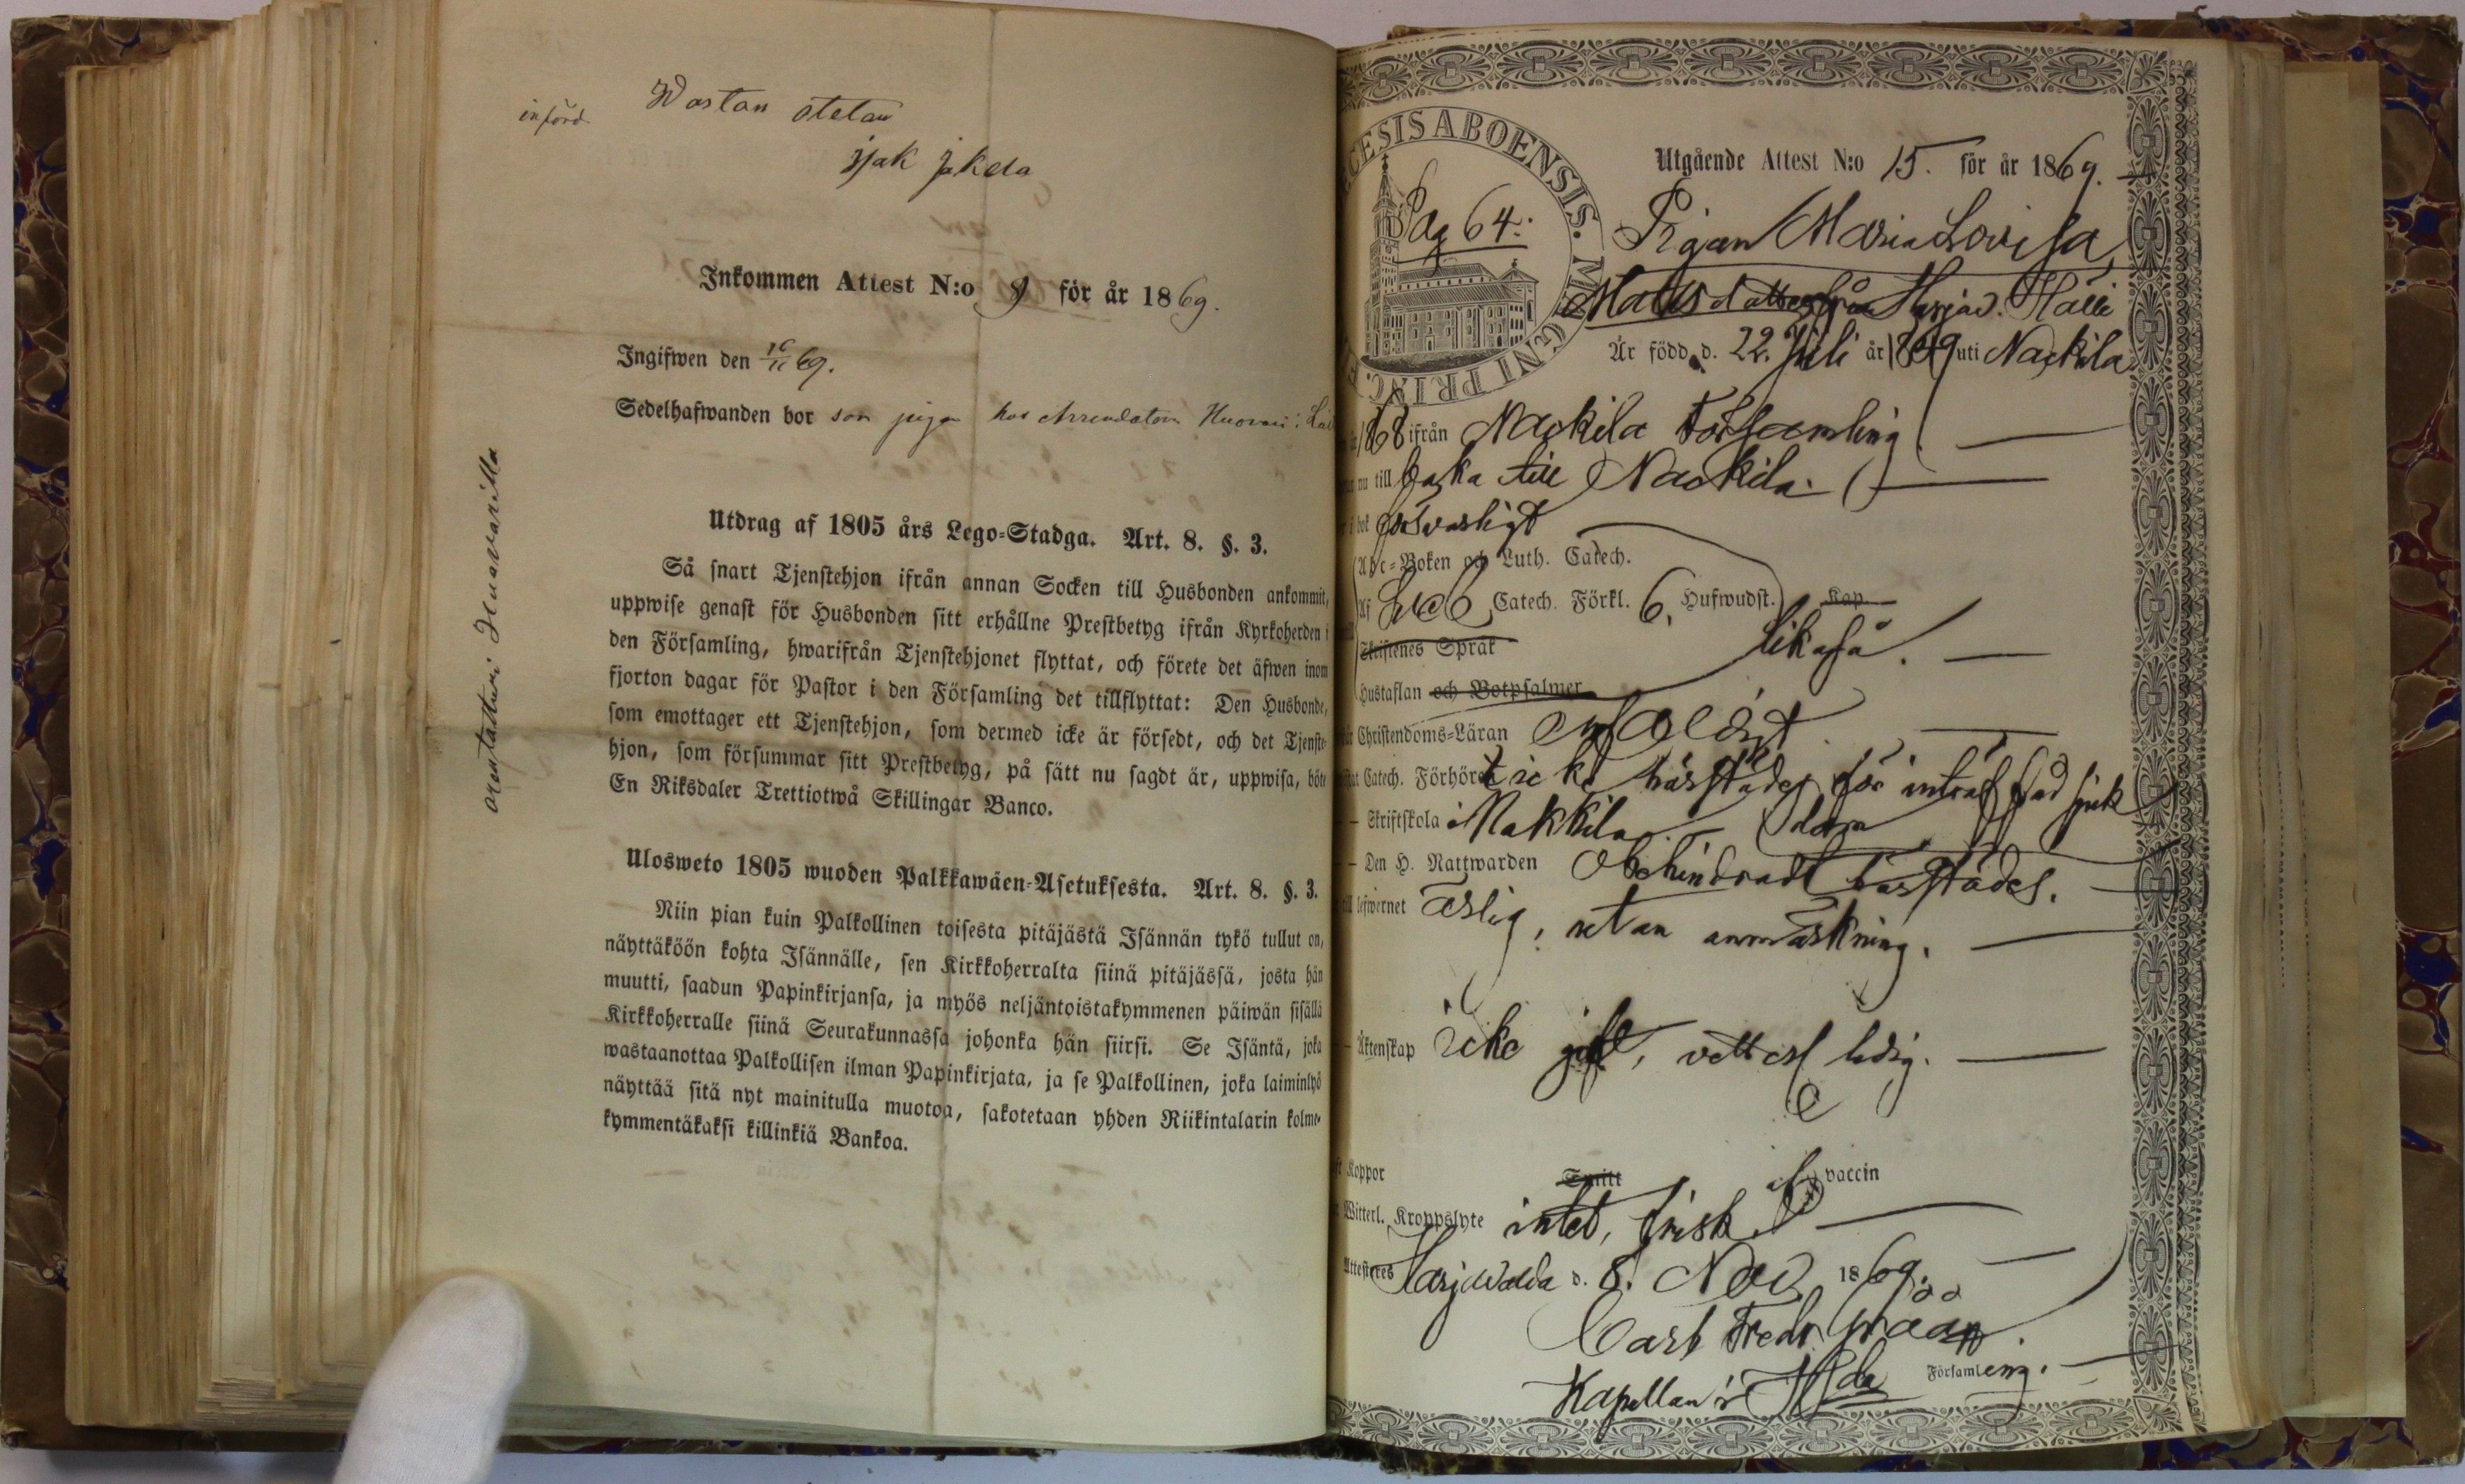 införd
Wastan otetan
Inkommen Attest N:o 9 för år 1869.
Ingifwen den 16/11 69.
Sedelhafwanden bor som piga hos Arrendatorn
Utdrag af 1805 års Lego-Stadga. Art. 8. §. 3.
Så snart Tjenstehjon ifrån annan Socken till Husbonden ankommit,
uppwise genast för Husbonden sitt erhållne Prestbetyg ifrån Kyrkoherden i
den Församling, hwarifrån Tjenstehjonet flyttat, och förete det äfwen inom
fjorton dagar för Pastor i den Församling det tillflyttat: Den Husbonde,
som emottager ett Tjenstehjon, som dermed icke är försedt, och det Tjenste-
hjon, som försummar sitt Prestbetyg, på sätt nu sagdt är, uppwisa, böte
En Riksdaler Trettiotwå Skillingar Banco.
Ulosweto 1805 wuoden Palkkawäen-Asetuksesta. Art. 8. §. 3.
Niin pian kuin Palkollinen toisesta pitäjästä Isännän tykö tullut on,
näyttäköön kohta Isännälle, sen Kirkkoherralta siinä pitäjässä, josta hän
muutti, saadun Papinkirjansa, ja myös neljäntoistakymmenen päiwän sisällä
Kirkkoherralle siinä Seurakunnassa johonka hän siirsi. Se Isäntä, joka
wastaanottaa Palkollisen ilman Papinkirjata, ja se Palkollinen, joka laiminlyö
näyttää sitä nyt mainitulla muotoa, sakotetaan yhden Riikintalarin kolme-
kymmentäkaksi killinkiä Bankoa.
CESIS ABOENSIS. MAGNI PRINC. F
Pag 64.
Utgående Attest N:o 15. för år 1869.
Pigan Maria Lovisa
Matsdotter från Harjav. Hälli
Är född d. 22. Juli år 1849 uti Nackila
1868 ifrån Nackila Församling
nu till baka till Nackila.
bok försvarligt
Abc-Boken och Luth. Catech.
Af Sveb. Catech. Förkl. 6. Hufwudst. Kap
Skriftenes Språk likaså.
Hustaflan och Botpsalmer
Christendoms-Läran enfaldigt
Catech. Förhöret icke härstädes för inträffad sjuk
Skriftskola i Nakkila. dom
Den H. Nattwarden obehindradt härstädes.
lefwernet ärlig, utan anmärkning.
Äktenskap icke gift, vetterl. ledig.
Koppor Smitt af vaccin
Witterl. Kroppslyte intet, frisk.
Attesteres Harjavalta d. 8. Nov 1869.
Carl Fredr.
Kapellan i Hda Församling.